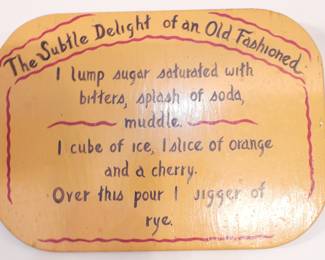 The Subtle Delight of an Old Fashioned
1 lump sugar saturated with
bitters, splash of soda,
muddle.
1 cube of ice, 1 slice of orange
and a cherry.
Over this pour 1 jigger of
rye.